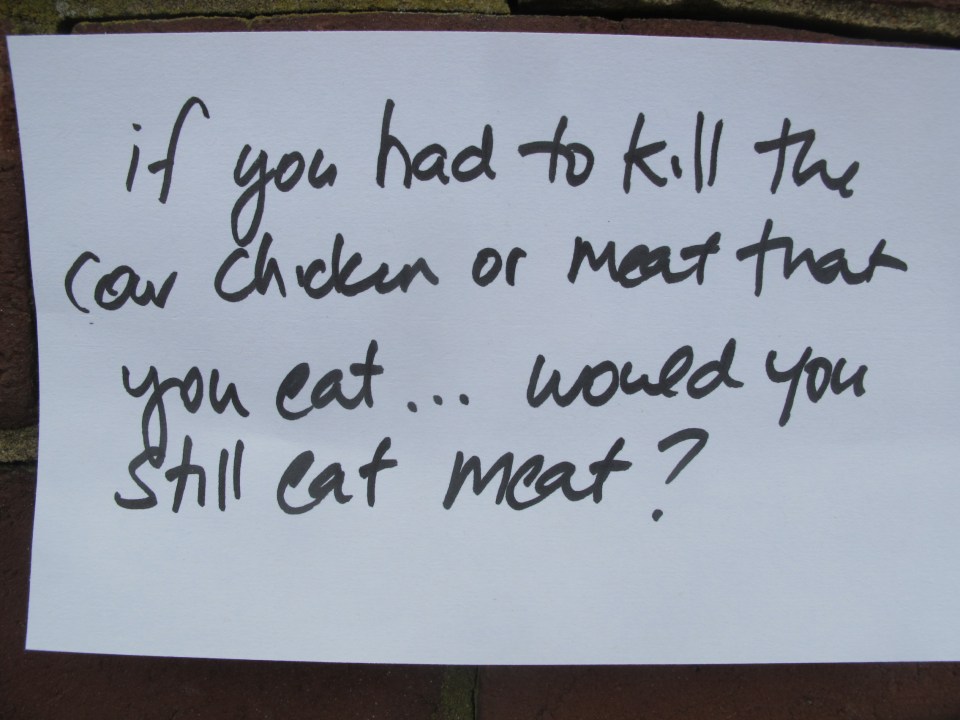 if you had to kill the
cow chicken or meat that
you eat... would you
still eat meat?